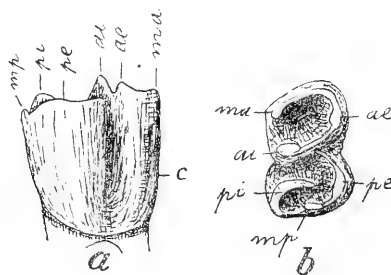 mp pi pe ai ae ma
c
a
ma ae
ai
pi pe
mp
b